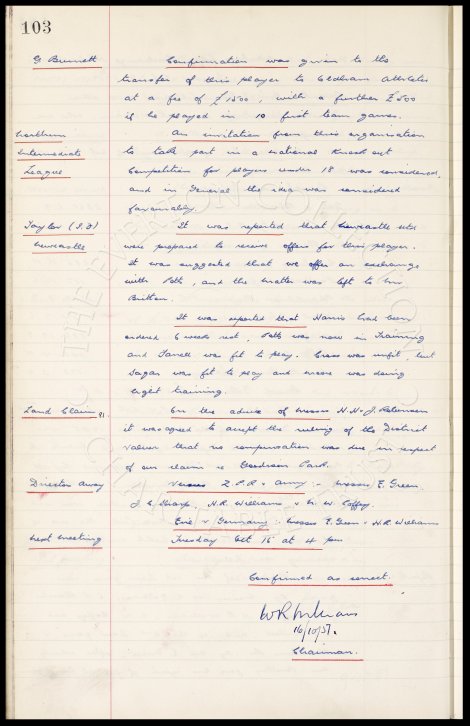 103
G Burnett Confirmation was given to the
transfer of this player to Oldham Athletic
at a fee of £1500, with a further £500
if he played in 10 first team games.
Northern An invitation from this organisation
Intermediate to take part in a national Knock out
League Competition for players under 18 was considered,
and in General the idea was considered
favourably.
Taylor It was reported that Newcastle Utd
Newcastle were prepared to receive offers for this player.
It was suggested that we offer an exchange
with Potts, and the matter was left to Mr
Britton.
It was reported that Harris had been
ordered 6 weeks rest, Potts was now in Training
and Farrell was fit to play. was unfit, but
was fit to play and was doing
light training.
Land Claim 91. On the advice of Messrs N. N. J.
it was agreed to accept the ruling of the District
Valuer that no compensation was due in respect
of our claim re Goodison Park.
Director Away Versus Army :- Messrs E. Green
J. C. Sharp, H.R. Williams & Coffey.
Eire v Germany :- Messrs E. Green & H.R. Williams
Next Meeting Tuesday Oct 15 at 4 pm
Confirmed as correct.
16/10/57.
Chairman.
THE EVERTON COLLECTION
CHARITABLE TRUST